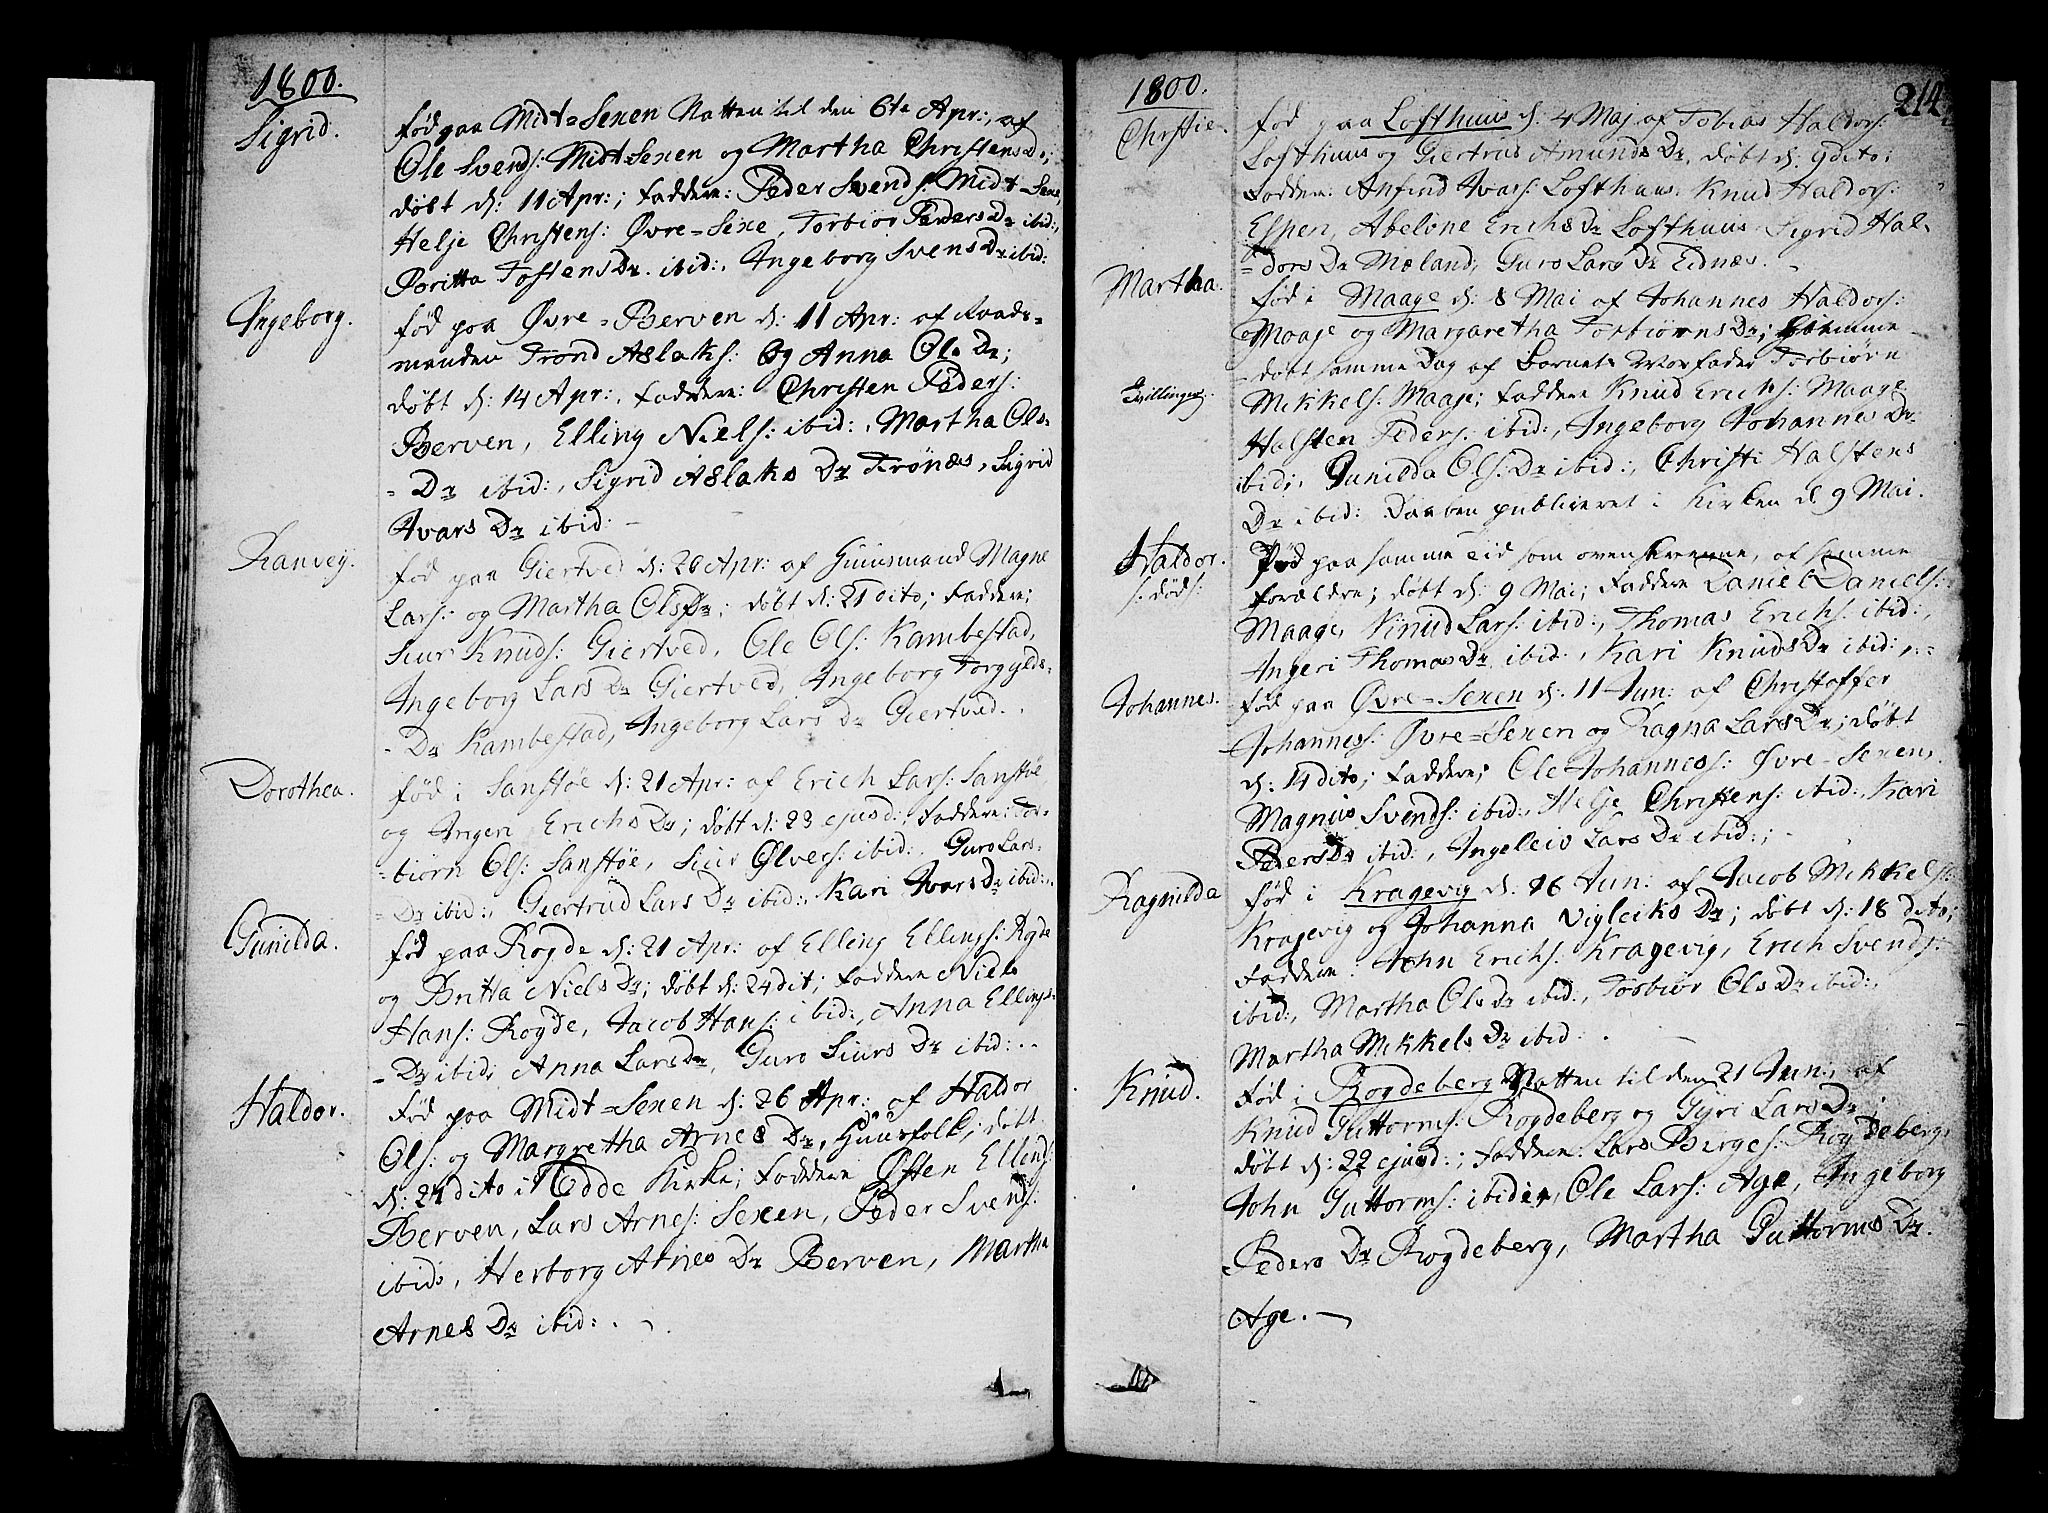 1800.
Sigrid.
Fød paa Midt=Sexen Natten til den 6te Apr:, af
Ole Svends: Midt=Sexen og Martha Christens Dr;
døbt d: 11 Apr:; Faddere: Peder Svends: Midt-Sexe,
Helje Christens: Øvre=Sexe, Torbiør Peders Dr ibid:,
Boritta Tostens Dr. ibid:, Ingeborg Svens Dr ibid:
Ingeborg.
Fød paa Øvre=Berven d: 11 Apr: af Raads=
manden Trond Aslaks: og Anna Ols Dr;
døbt d: 14 Apr:, Faddere: Christen Peders:
Berven, Elling Niels: ibid:, Martha Ols=
=Dr ibid:, Sigrid Aslaks Dr Trones, Sigrid
Ivars Dr ibid: -
Ranvey.
Fød paa Giertved d: 20 Apr: af Huusmand Magne
Lars: og Martha Ols Dr; døbt d: 21 dito; Faddere;
Siur Knuds: Giertved, Ole Ols: Kambestad,
Ingeborg Lars Dr Giertved, Ingeborg Torgylds=
- Dr Kambestad, Ingeborg Lars Dr Giertved. .
Dorothea.
Fød i Sanstøe d: 21 Apr: af Erich Lars: Sanstøe
og Ingeri Erichs Dr; døbt d: 23 ejusd:, Faddere: Tor=
=biørn Ols: Sanstøe, Siur Ølvers: ibid:, Guro Lars=
=Dr ibid:, Giertrud Lars Dr ibid:, Kari Ivars Dr ibid:.
Gunilda.
Fød paa Rogde d: 21 Apr: af Elling Ellings: Rgde
og Britta Niels Dr; døbt d: 24 dit; Faddere Niels
Hans: Rogde, Jacob Hans: ibid:, Anna Ellings=
- Dr ibid; Anna Lars Dr, Guro Siurs Dr ibid: . .
Haldor.
Fød paa Midt=Sexen d: 26 Apr: af Haldor
Ols: og Margretha Arnes Dr, Huusfolk; døbt
d: 27 dito i Odde Kirke; Faddere Østen Ellings:
Berven, Lars Arnes: Sexen, Peder Svends:
ibid:, Herborg Arnes Dr Berven, Martha
Arnes Dr ibid: . -
1800.
214
Christie.
Fød paa Lofthuus d: 4 Maj af Tobias Haldors:
Lofthuus og Giertrus Amunds Dr, døbt d: 9 dito;
Faddere: Anfind Ivars: Lofthuus: Knud Haldors:
Espen, Abelone Erichs Dr Lofthuus Sigrid Hal=
=dors Dr Mæland, Guro Lars Dr Eidnæs. -
Martha.
Fød i Maage d: 8 Mai af Johannes Haldors:
Maage og Margaretha Torbiørns Dr; hiemme-
-døbt samme Dag af Barnets Morfader Torbiørn
Tvillinger.
Mikkels: Maage; Faddere Knud Erichs: Maage
Halsten Peders: ibid:, Ingeborg Johannes Dr
ibid:, Gunilda Ols: Dr ibid:, Christi Halstens
Dr ibid: Daaben publiceret i Kirken d. 9 Mai.
Haldor.
/: død :/
Fød paa samme Tid som ovenskrevne, af samme
Forældre; døbt d: 9 Mai; Faddere Daniel Daniels:
Maage, Knud Lars: ibid:, Thomas Erichs: ibid:,
Ingeri Thomas Dr ibid:, Kari Knuds Dr ibid: .-
Johannes.
Fød paa Øvre=Sexen d: 11 Jun: af Christoffer
Johannes: Øvre=Sexen og Ragna Lars Dr; døbt
d: 14 dito; Faddere; Ole Johannes: Øvre-Sexen,
Magnus Svends: ibid:, Helje Christens: ibid:, Kari
Peders Dr ibid:, Ingeleiv Lars Dr ibid:; -
Ragnilda
Fød i Kragevig d: 16 Jun: af Jacob Mikkels:
Kragevig og Johanna Vigleiks Dr; døbt d: 18 dito;
Faddere: John Erichs: Kragevig, Erich Svends:
ibid:, Martha Ols Dr ibid:, Torbiør Ols Dr ibid:,
Martha Mikkels Dr ibid: .
Knud.
Fød i Rogdeberg Natten til den 21 Jun:, af
Knud Guttorms: Rogdeberg og Gyri Lars Dr;
døbt d: 22 ejusd:; Faddere: Lars Berges: Rogdeberg,
John Guttorms: ibid:, Ole Lars: Age, Ingeborg
Peders Dr Rogdeberg, Martha Guttorms Dr.
Age. -